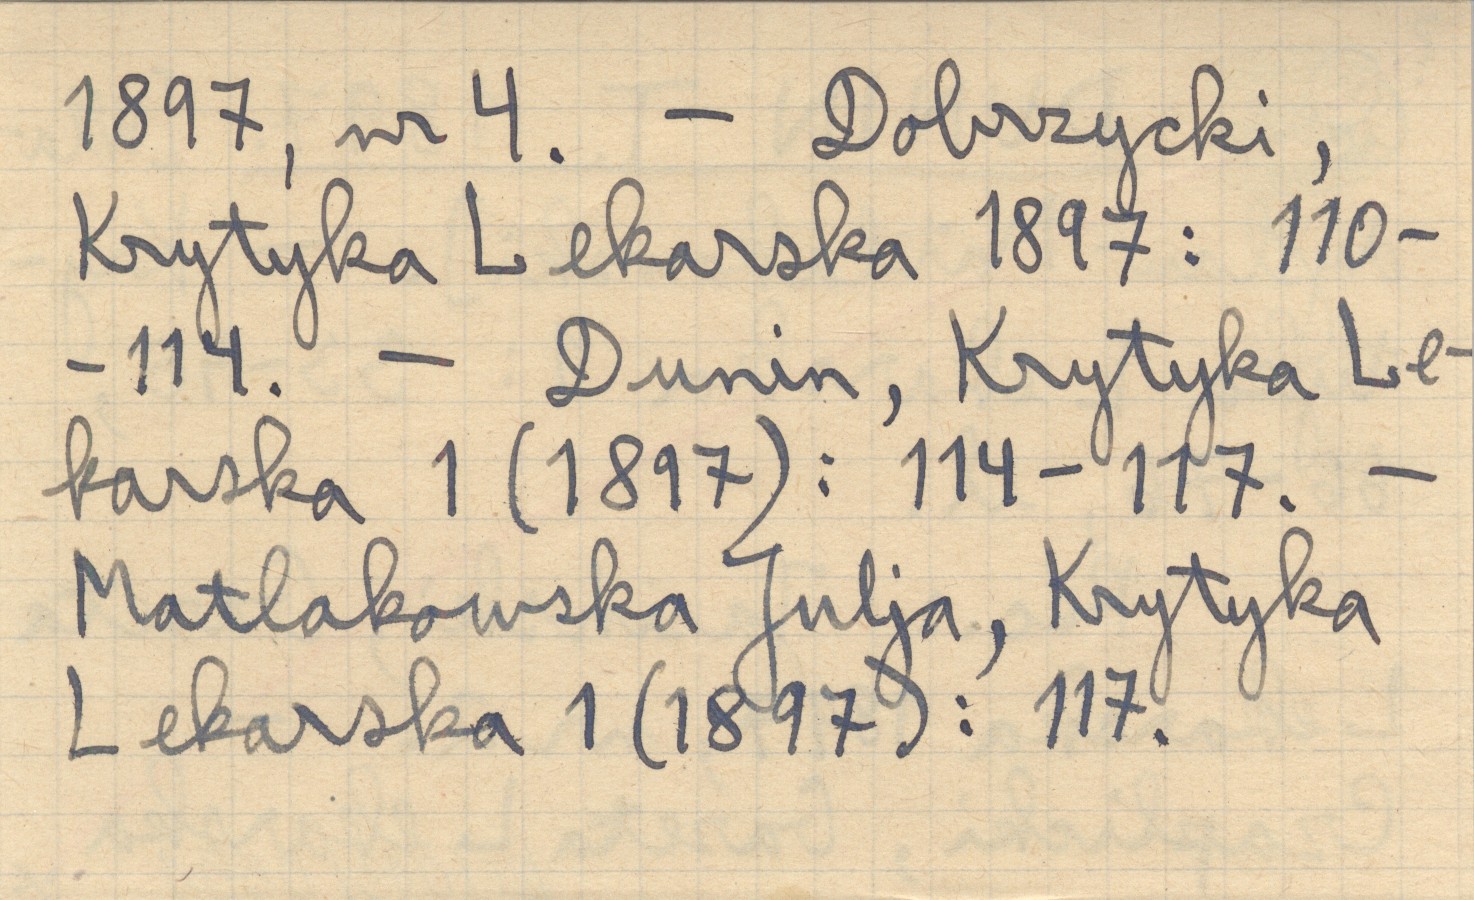 1897, nr 4. — Dobrzycki,
Krytyka Lekarska 1897: 110-
-114. — Dunin, Krytyka Le-
karska 1 (1897): 114-117. —
Matlakowska Julja, Krytyka
Lekarska 1 (1897): 117.